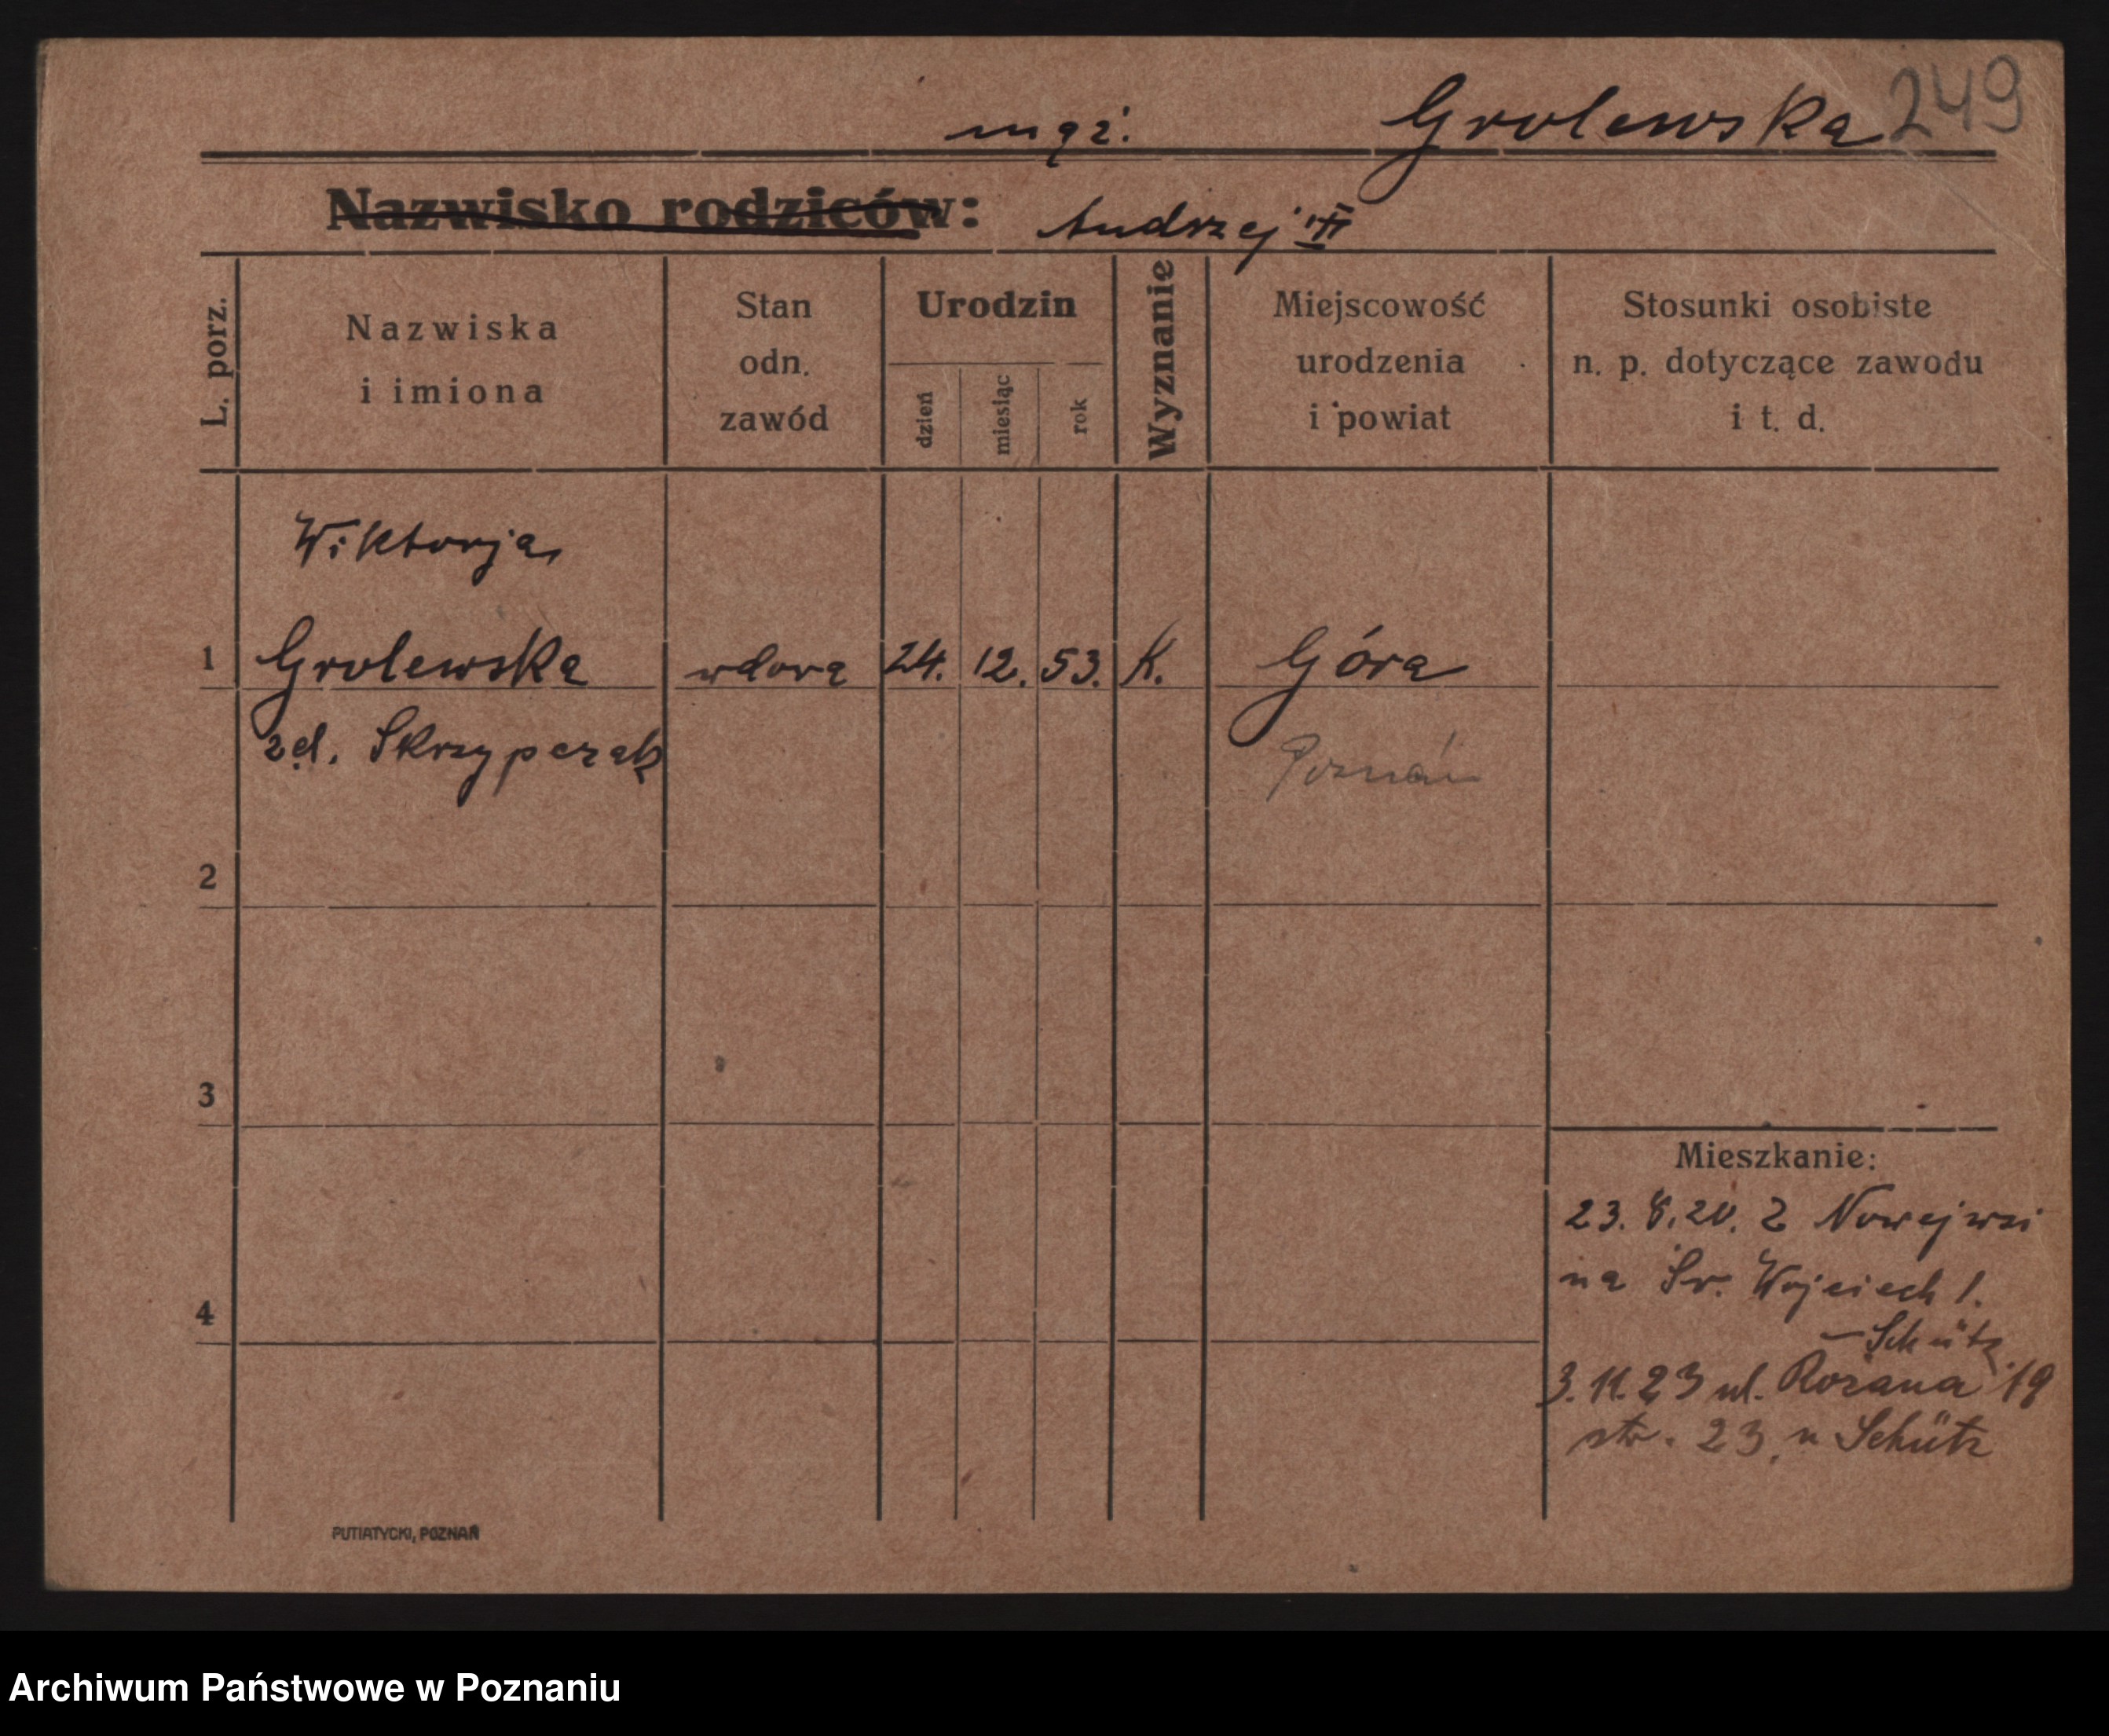 249
mąż. Grolewska
Nazwisko rodziców: Andrzej III
L. porz.
Nazwiska
i imiona
Stan
odn.
zawód
Urodzin
dzień
miesiąc
rok
Wyznanie
Miejscowość
urodzenia
i powiat
Stosunki osobiste
n. p. dotyczące zawodu
i t. d.
Wiktorja
1 Grolewska wdowa 24. 12. 53. K. Góra
Skrzypczak Poznań
2
3
Mieszkanie:
23. 8. 20. z Nowej wsi
na Św. Wojciech 1.
4
– Schütz
3. 11. 23 ul. Różana 19
str. 23, u Schütz
PUTIATYCKI, POZNAŃ
Archiwum Państwowe w Poznaniu